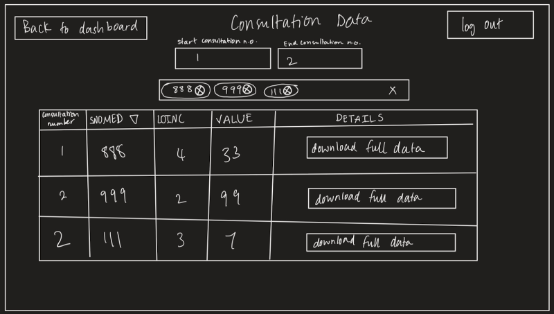 Back to dashboard
Consultation Data
log out
Start consultation n.o.
End consultation n.o.
1
2
888
999
111
X
Consultation number
SNOMED ▽
LOINC
VALUE
DETAILS
1
888
4
33
download full data
2
999
2
99
download full data
2
111
3
7
download full data